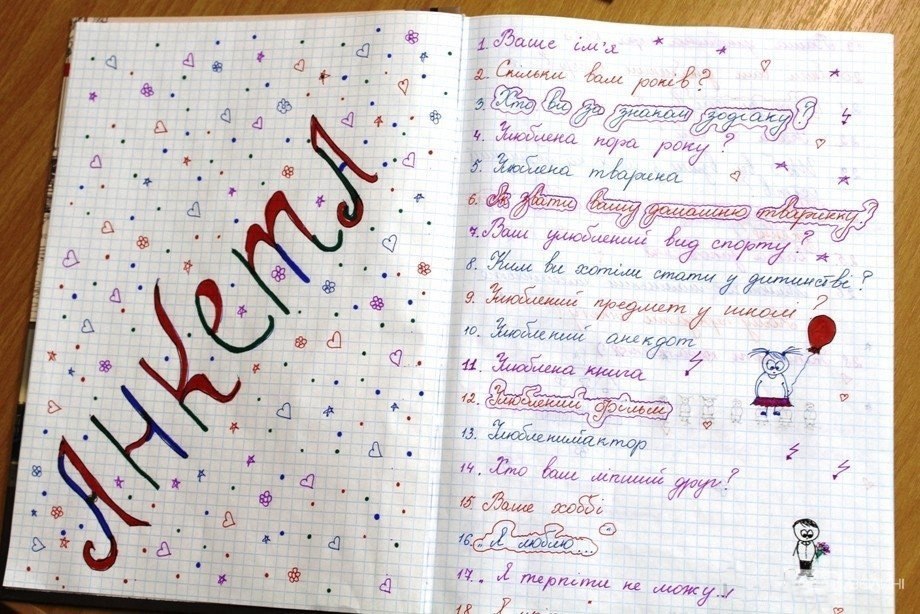 АНКЕТА
1. Ваше ім'я
2. Скільки вам років?
3. Хто ви за знаком зодіаку?
4. Улюблена пора року?
5. Улюблена тварина
6. Як звати вашу домашню тваринку?
7. Ваш улюблений вид спорту?
8. Ким ви хотіли стати у дитинстві?
9. Улюблений предмет у школі?
10. Улюблений анекдот
11. Улюблена книга
12. Улюблений фільм
13. Улюблений актор
14. Хто ваш ліпший друг?
15. Ваше хоббі
16. "Я люблю..."
17. "Я терпіти не можу...
18. Я